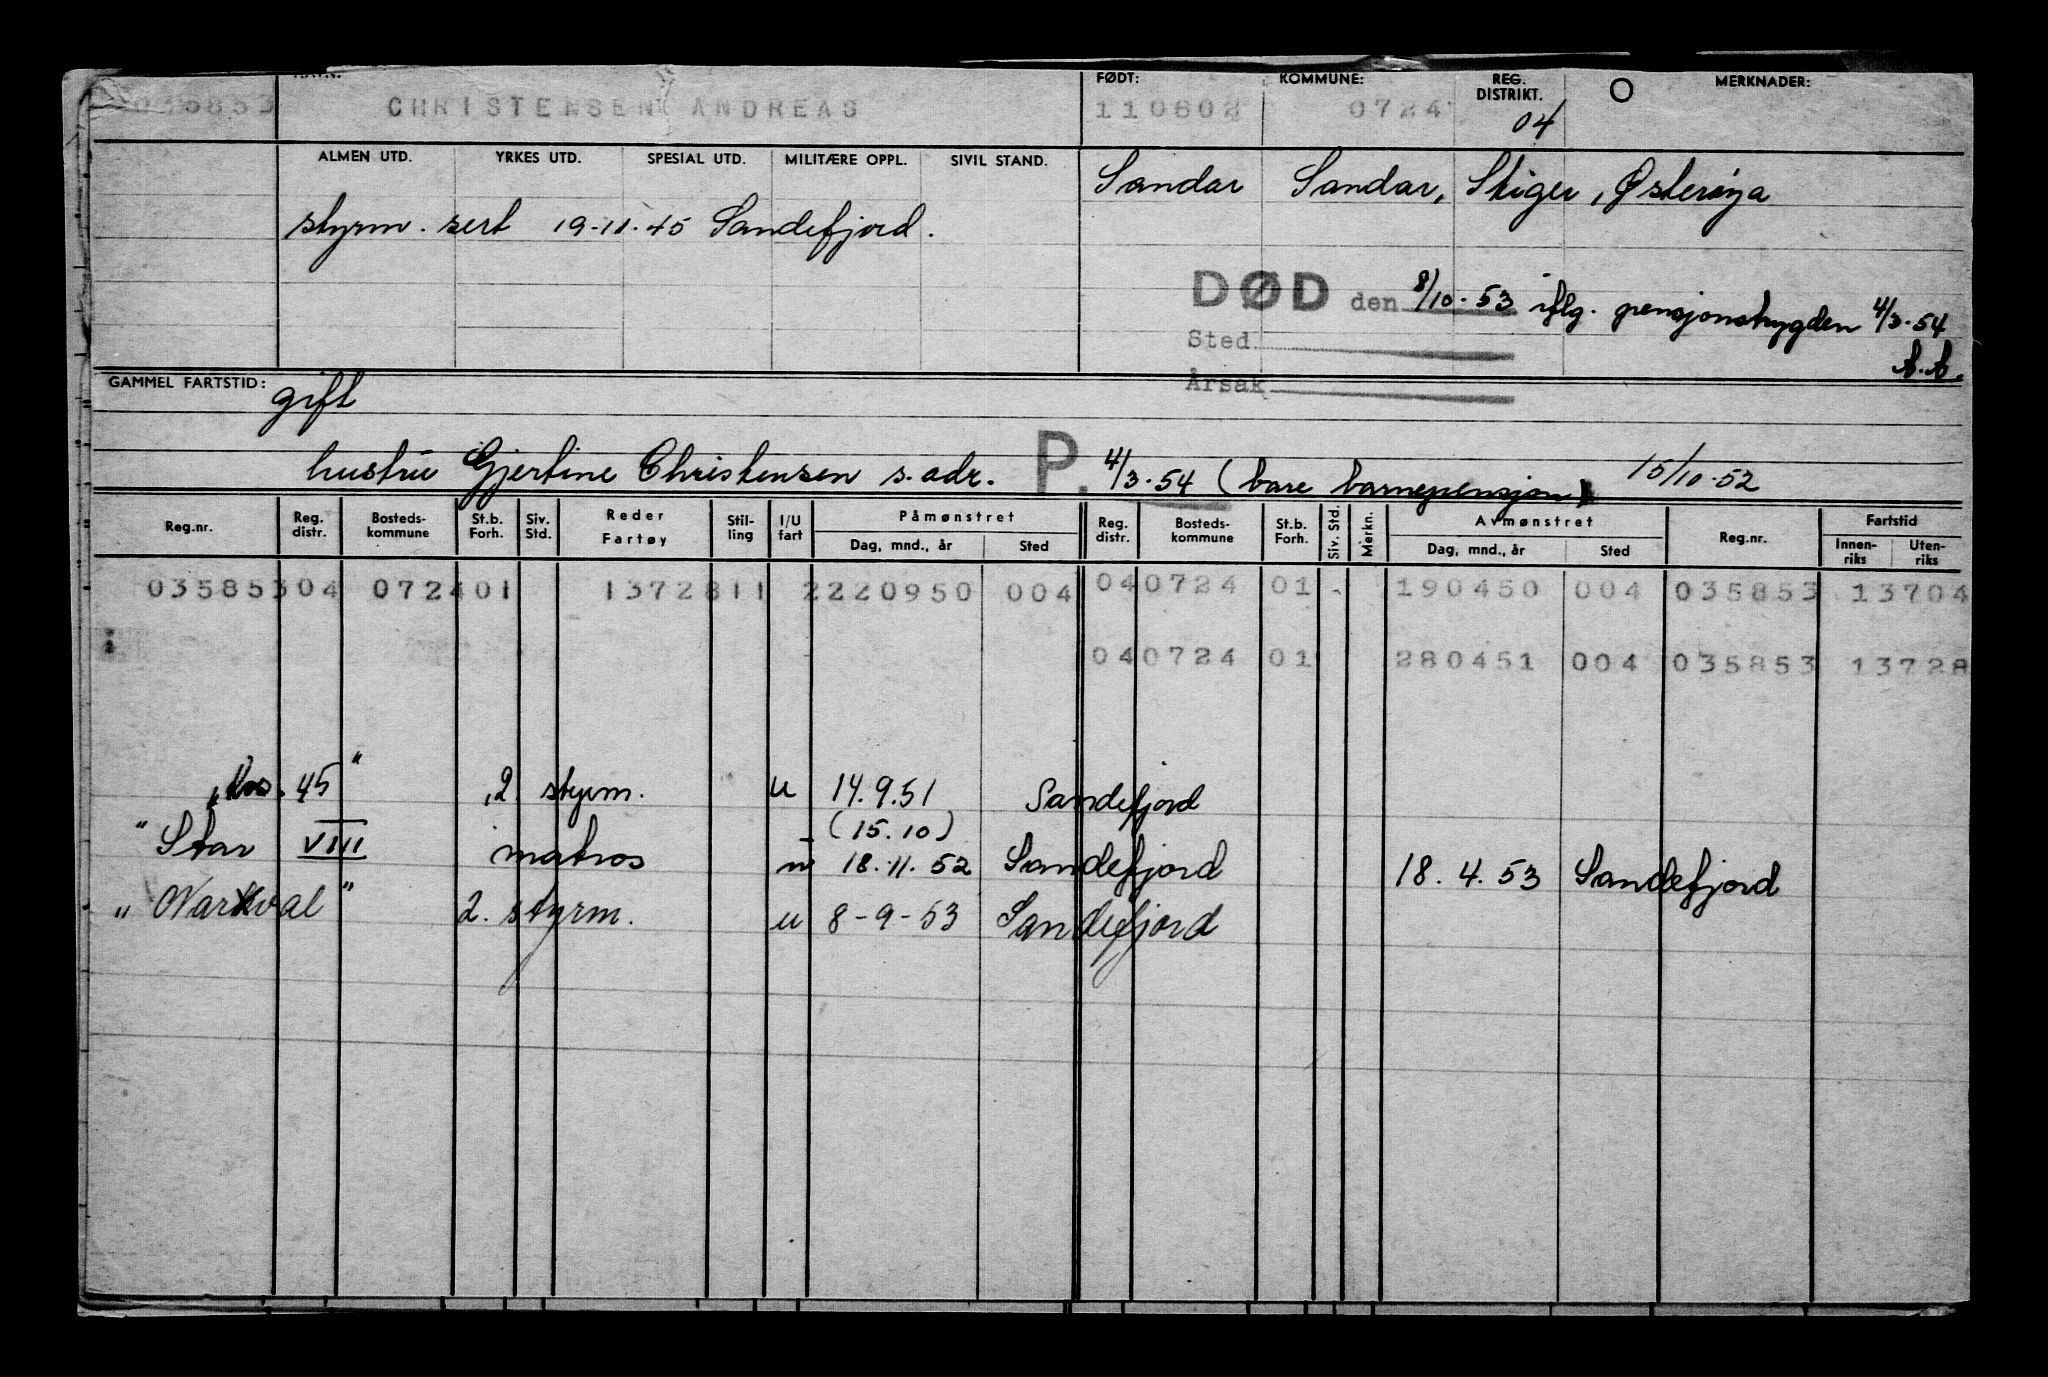 FØDT: KOMMUNE: REG. DISTRIKT. O MERKNADER:
035853 CHRISTENSEN ANDREAS 110802 0724 04
ALMEN UTD. YRKES UTD. SPESIAL UTD. MILITÆRE OPPL. SIVIL STAND.
Sandar Sandar, Skiger, Østerøya
styrm. sert 19-11-45 Sandefjord.
DØD den 8/10-53 iflg. pensjonstrygden 4/3-54
Sted
Årsak
GAMMEL FARTSTID:
gift
hustru Gjertine Christensen s. adr. P. 4/3-54 (bare barnepensjon) 15/10-52
Reg.nr. Reg. distr. Bosteds-kommune St.b. Forh. Siv. Std. Reder Fartøy Stil-ling I/U fart Påmønstret Dag, mnd., år Sted Reg. distr. Bosteds-kommune St.b. Forh. Siv. Std. Merkn. Avmønstret Dag, mnd., år Sted Reg.nr. Fartstid Innen-riks Uten-riks
035853 04 0724 01 13728 11 2 220950 004 04 0724 01 - 190450 004 035853 13704
04 0724 01 280451 004 035853 13728
"Kos. 45" 2 styrm. u 14.9.51 Sandefjord
(15.10)
"Star VIII matros u 18.11.52 Sandefjord 18.4.53 Sandefjord
"Narhval" 2. styrm. u 8-9-53 Sandefjord